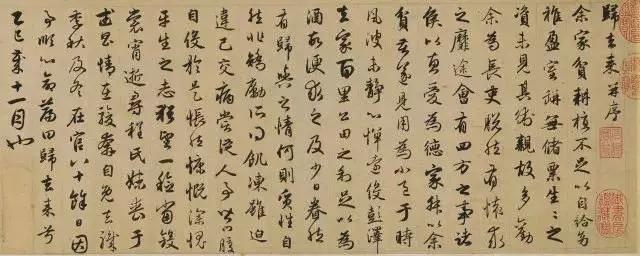 歸去來并序
余家貧耕植不足以自給幼
稚盈室缾無儲粟生生之
資未見其術親故多勸
余為長吏脫然有懷求
之靡途會有四方之事諸
侯以惠愛為德家叔以余
貧苦遂見用為小邑于時
風波未靜心憚遠役彭澤
去家百里公田之利足以為
酒故便求之及少日眷然
有歸與之情何則質性自
然非矯勵所得飢凍雖迫
違己交病嘗從人事皆口腹
自役於是悵然慷慨深愧
平生之志猶望一稔當斂
裳宵逝尋程氏妹喪于
武昌情在駿奔自免去職
季秋及冬在官八十餘日因
事順心命篇曰歸去來兮
乙巳歲十一月也